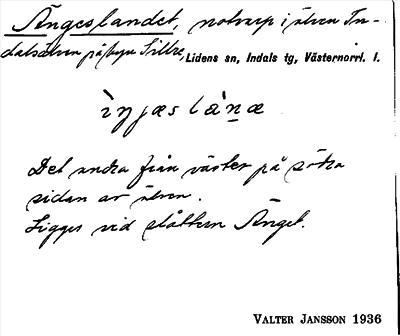 Ängeslandet, notvarp i älven In-
dalsälven på byn Sillre, Lidens sn, Indals tg, Västernorrl. l.
ìŋjæs làǹæ
Det andra från väster på södra
sidan av älven.
Ligger vid slåttern Änget.
VALTER JANSSON 1936